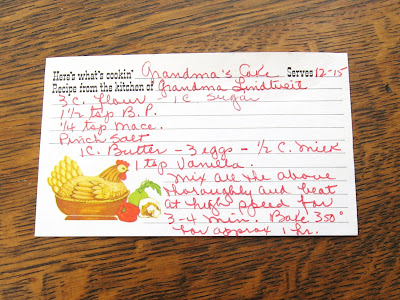 Here's what's cookin' Grandma's Cake Serves 12-15
Recipe from the kitchen of Grandma Lindtveit
3 c. flour 1 c. Sugar
1 1/2 tsp B.P.
1/4 tsp Mace.
Pinch Salt
1 C. Butter - 3 eggs - 1/2 C. Milk
1 tsp Vanilla.
Mix all the above
thoroughly and beat
at high speed for
3-4 min. Bake 350°
for approx 1 hr.